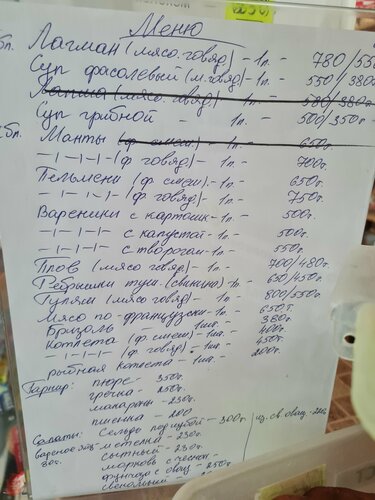 Меню
Лагман (мясо.говяд) - 1п. - 780/550
Суп фасолевый (м.говяд) - 1п. - 550/380
Лапша (мясо.говяд) 1п. - 580/380
Суп грибной - 1п. - 500/350т
Манты (ф смеш.) - 1п. - 650т
-|-|-|- (ф говяд) - 1п. - 700т
Пельмени (ф смеш). - 1п. - 650т.
-|-|-|- (ф говяд) - 1п. - 750т.
Вареники с картошк - 1п. - 500т.
-|-|-|- с капустой - 1п. - 500т.
-|-|-|- с творогом - 1п. - 550т.
Плов (мясо говяд) - 1п. - 700/480т
Ребрышки туш. (свинина) - 1п - 650/450т.
Гуляш (мясо говяд) - 1п. - 800/550т
Мясо по-французски - 1п. - 650т.
Бризоль - 1шт. - 380т.
Котлета (ф.смеш) - 1шт. - 400т.
-|-|-|- (ф говяд) - 1шт. - 450т.
рыбная котлета - 1шт. - 200т.
Гарнир: пюре - 350т.
гречка - 250т.
макароны - 230т.
пшенка - 200
Салаты: Сельдь под шубой - 300т. из св. овощ - 220т
метелка - 230т.
сытный - 230т.
морковь с чесноком
фунчоза с овощ - 250т